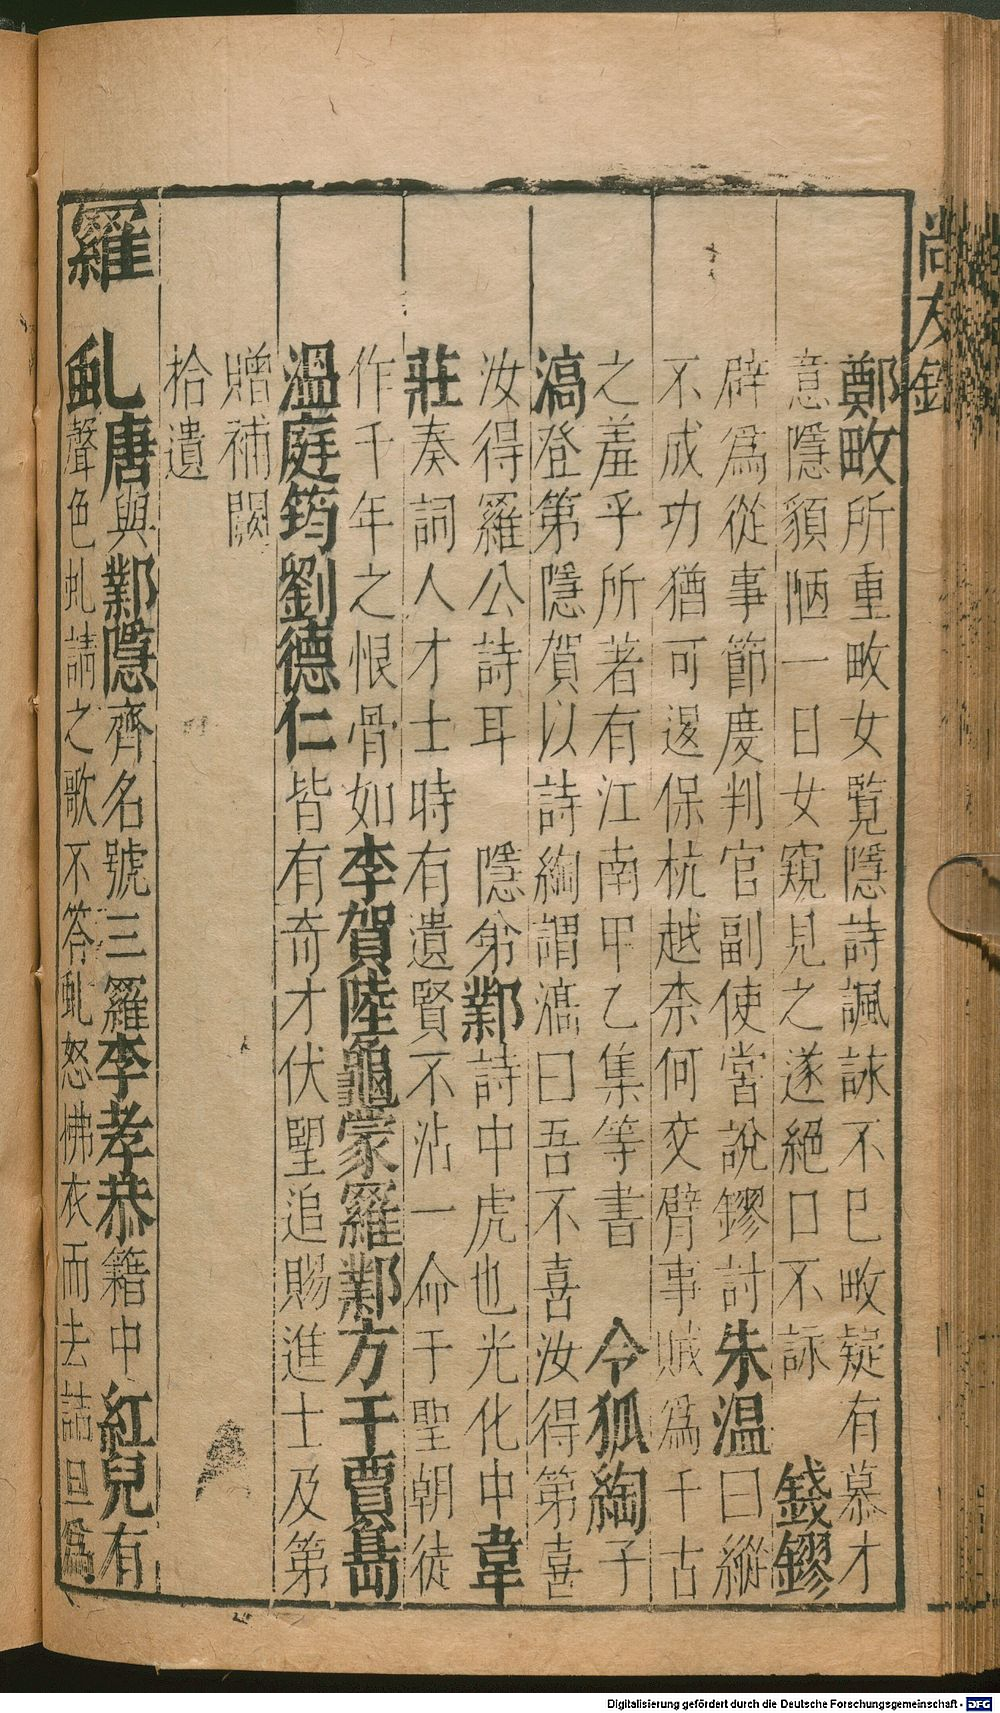 尚友錄
鄭畋所重畋女覽隱詩諷詠不巳畋疑有慕才
意隱貌陋一日女窺見之遂絕口不詠　錢鏐
辟爲從事節度判官副使嘗說鏐討朱温曰縱
不成功猶可退保杭越柰何交臂事賊爲千古
之羞乎所著有江南甲乙集等書　令狐綯子
滈登第隱賀以詩綯謂滈曰吾不喜汝得第喜
汝得羅公詩耳　隱弟鄴詩中虎也光化中韋
莊奏詞人才士時有遺賢不沾一命于聖朝徒
作千年之恨骨如李賀陸龜蒙羅鄴方干賈島
溫庭筠劉德仁皆有奇才伏望追賜進士及第
贈補闕
拾遺
羅　虬唐與鄴隱齊名號三羅李孝恭籍中紅兒有
虬聲色虬請之歌不答虬怒拂衣而去詰旦爲
Digitalisierung gefördert durch die Deutsche Forschungsgemeinschaft - DFG